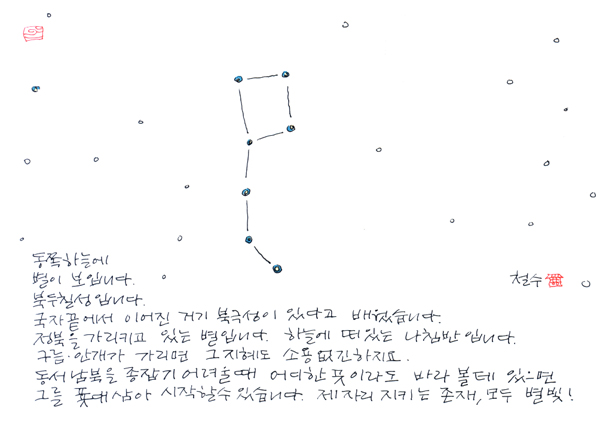 동쪽하늘에
별이 보입니다.
북두칠성입니다.
국자끝에서 이어진 거기 북극성이 있다고 배웠습니다.
정북을 가리키고 있는 별입니다. 하늘에 떠있는 나침반입니다.
구름·안개가 가리면 그지혜도 소용없긴하지요.
동서남북을 종잡기 어려울때 어떠한 뜻이라도 바라 볼데 있으면
그를 푯대삼아 시작할수있습니다. 제자리 지키는 존재, 모두 별빛!
철수